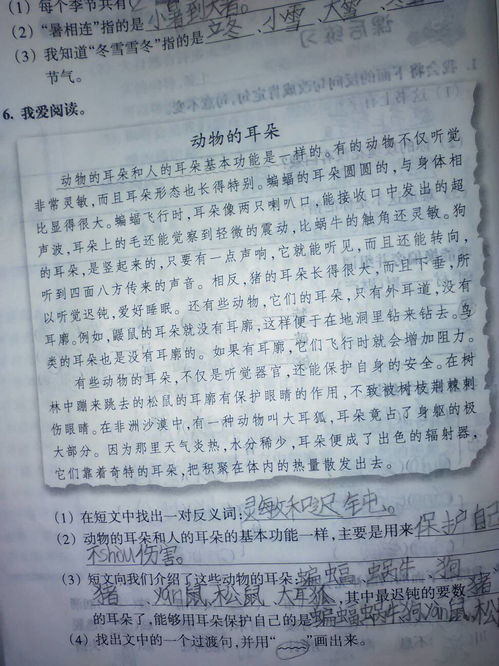 (1) 每个季节共有
(2) “暑相连”指的是小暑到大暑。
(3) 我知道“冬雪雪冬”指的是立冬、小雪、大雪、冬
节气。
6. 我爱阅读。
动物的耳朵
动物的耳朵和人的耳朵基本功能是一样的。有的动物不仅听觉
非常灵敏,而且耳朵形态也长得特别。蝙蝠的耳朵圆圆的,与身体相
比显得很大。蝙蝠飞行时,耳朵像两只喇叭口,能接收口中发出的超
声波,耳朵上的毛还能觉察到轻微的震动,比蜗牛的触角还灵敏。狗
的耳朵,是竖起来的,只要有一点声响,它就能听见,而且还能转向,
听到四面八方传来的声音。相反,猪的耳朵长得很大,而且下垂,所
以听觉迟钝,爱好睡眠。还有些动物,它们的耳朵,只有外耳道,没有
耳廓。例如,鼹鼠的耳朵就没有耳廓,这样便于在地洞里钻来钻去。鸟
类的耳朵也是没有耳廓的。如果有耳廓,它们飞行时就会增加阻力。
有些动物的耳朵,不仅是听觉器官,还能保护自身的安全。在树
林中蹦来跳去的松鼠的耳廓有保护眼睛的作用,不致被树枝荆棘刺
伤眼睛。在非洲沙漠中,有一种动物叫大耳狐,耳朵竟占了身躯的极
大部分。因为那里天气炎热,水分稀少,耳朵便成了出色的辐射器,
它们靠着奇特的耳朵,把积聚在体内的热量散发出去。
(1) 在短文中找出一对反义词:灵敏和迟钝。
(2) 动物的耳朵和人的耳朵的基本功能一样,主要是用来保护自己
不shou伤害。
(3) 短文向我们介绍了这些动物的耳朵:蝙蝠、蜗牛、狗
猪、yan鼠、松鼠、大耳狐,其中最迟钝的要数猪
的耳朵了,能够用耳朵保护自己的是蝙蝠蜗牛狗yan鼠、松
(4) 找出文中的一个过渡句,并用“ ”画出来。